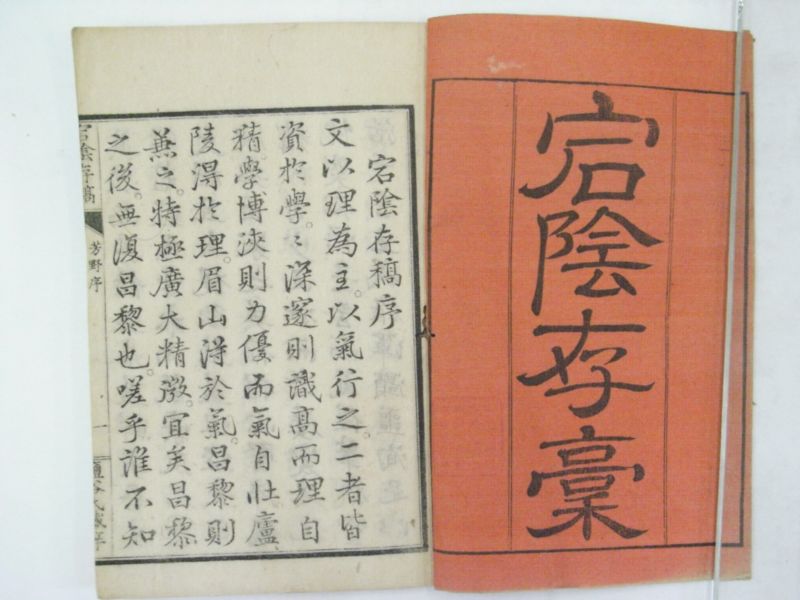 宕陰存稾
宕陰存稿序
文以理為主。以氣行之。二者皆
資於學。〻深邃則識高而理自
精。學博浹則力優而氣自壯。廬
陵得於理。眉山得於氣。昌黎則
兼之。特極廣大精微。宜矣昌黎
之後。無復昌黎也。嗟乎誰不知
宕陰存稿
芳野序
一